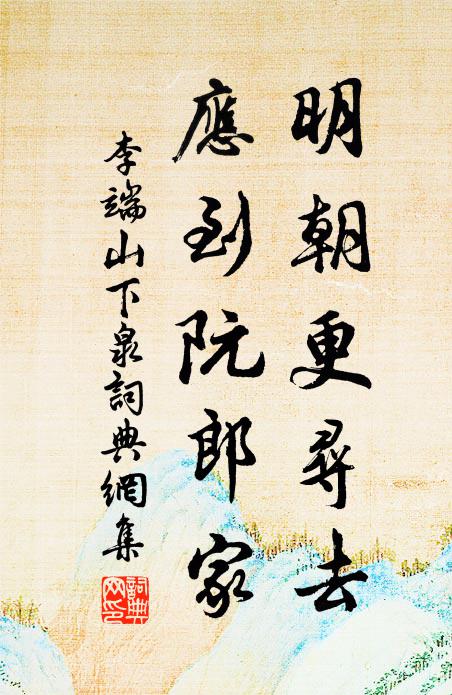 明朝更尋去
應到阮郎家
李端山下泉詞典網集
詞典
网印